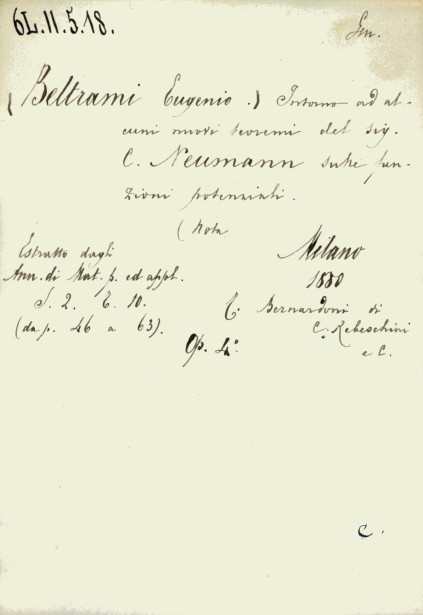 6L.11.5.18.
(Beltrami Eugenio.) Intorno ad al-
cuni nuovi teoremi del sig.
C. Neumann sulle fun-
zioni potenziali.
(Nota
Estratto dagli
Ann. di Mat. p. ed appl.
S. 2. T. 10.
(da p. 46 a 63).
Milano
1880
T. Bernardoni di
C. Rebeschini
e C.
Op. 4º
C.